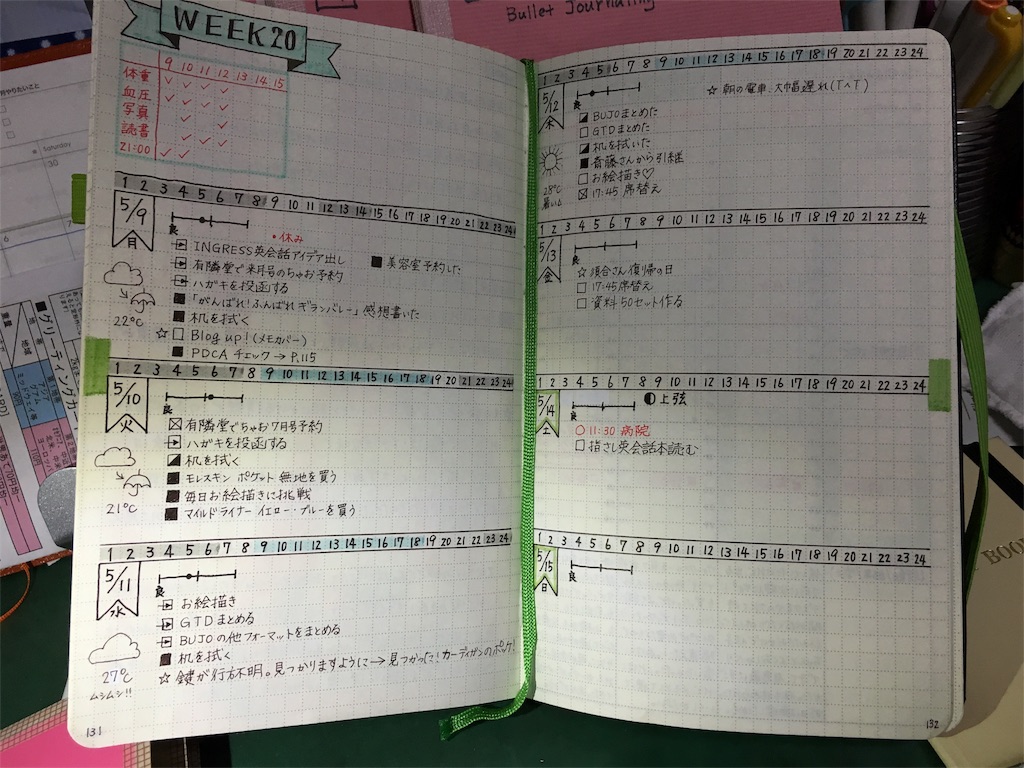 Bullet Journaling
WEEK20
9 10 11 12 13 14 15
体重
血圧
写真
読書
21:00
1 2 3 4 5 6 7 8 9 10 11 12 13 14 15 16 17 18 19 20 21 22 23 24
5/9
月
良
・休み
INGRESS英会話アイデア出し
美容室予約した
有隣堂で来月号のちゃお予約
ハガキを投函する
「がんばれ!ふんばれギランバレー」感想書いた
机を拭く
☆ Blog up! (メモカバー)
PDCA チェック → P.115
22℃
1 2 3 4 5 6 7 8 9 10 11 12 13 14 15 16 17 18 19 20 21 22 23 24
5/10
火
良
有隣堂でちゃお7月号予約
ハガキを投函する
机を拭く
モレスキン ポケット 無地を買う
毎日お絵描きに挑戦
マイルドライナー イエロー・ブルーを買う
21℃
1 2 3 4 5 6 7 8 9 10 11 12 13 14 15 16 17 18 19 20 21 22 23 24
5/11
水
良
お絵描き
GTDまとめる
BUJOの他フォーマットをまとめる
机を拭く
☆ 鍵が行方不明。見つかりますように→見つかった!カーディガンのポッケ!
27℃
ムシムシ!!
131
1 2 3 4 5 6 7 8 9 10 11 12 13 14 15 16 17 18 19 20 21 22 23 24
5/12
木
良
☆ 朝の電車、大幅遅れ(T^T)
BUJOまとめた
GTDまとめた
机を拭いた
斎藤さんから引継
お絵描き♡
17:45 席替え
28℃
1 2 3 4 5 6 7 8 9 10 11 12 13 14 15 16 17 18 19 20 21 22 23 24
5/13
金
良
☆ 須合さん復帰の日
17:45席替え
資料50セット作る
1 2 3 4 5 6 7 8 9 10 11 12 13 14 15 16 17 18 19 20 21 22 23 24
5/14
土
良
上弦
○ 11:30 病院
指さし英会話本読む
1 2 3 4 5 6 7 8 9 10 11 12 13 14 15 16 17 18 19 20 21 22 23 24
5/15
日
良
132
Saturday
30
グリーティングカ